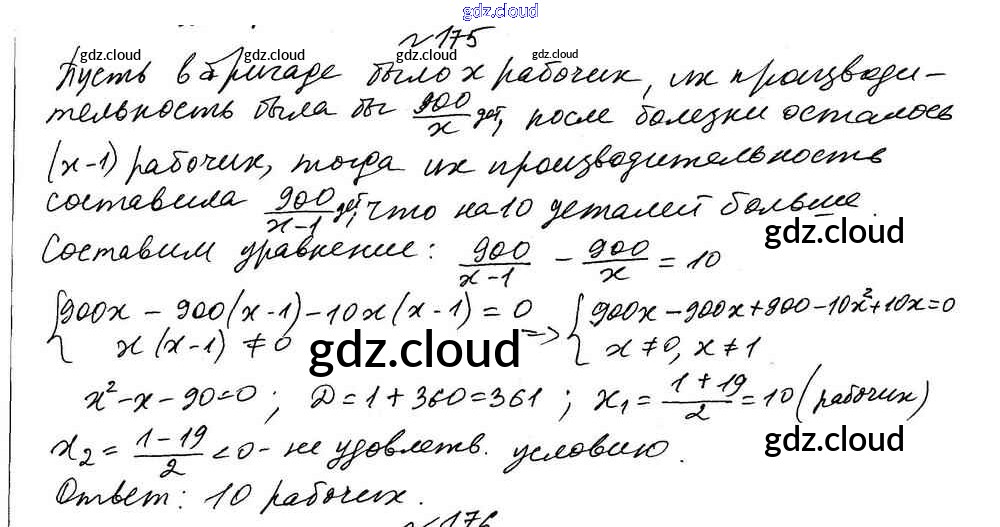 gdz.cloud
№175
gdz.cloud gdz.cloud gdz.cloud
Пусть в бригаде было x рабочих, их производи-
тельность была бы 900/x дет, после болезни осталось
(x-1) рабочих, тогда их производительность
составила 900/(x-1) дет, что на 10 деталей больше.
gdz.cloud
Составим уравнение: 900/(x-1) - 900/x = 10
{900x - 900(x-1) - 10x(x-1) = 0 => {900x - 900x + 900 - 10x² + 10x = 0
x(x-1) ≠ 0 x ≠ 0, x ≠ 1
gdz.cloud
x² - x - 90 = 0; D = 1 + 360 = 361; x₁ = (1+19)/2 = 10 (рабочих)
gdz.cloud
x₂ = (1-19)/2 < 0 - не удовлетв. условию.
gdz.cloud
Ответ: 10 рабочих.
№176